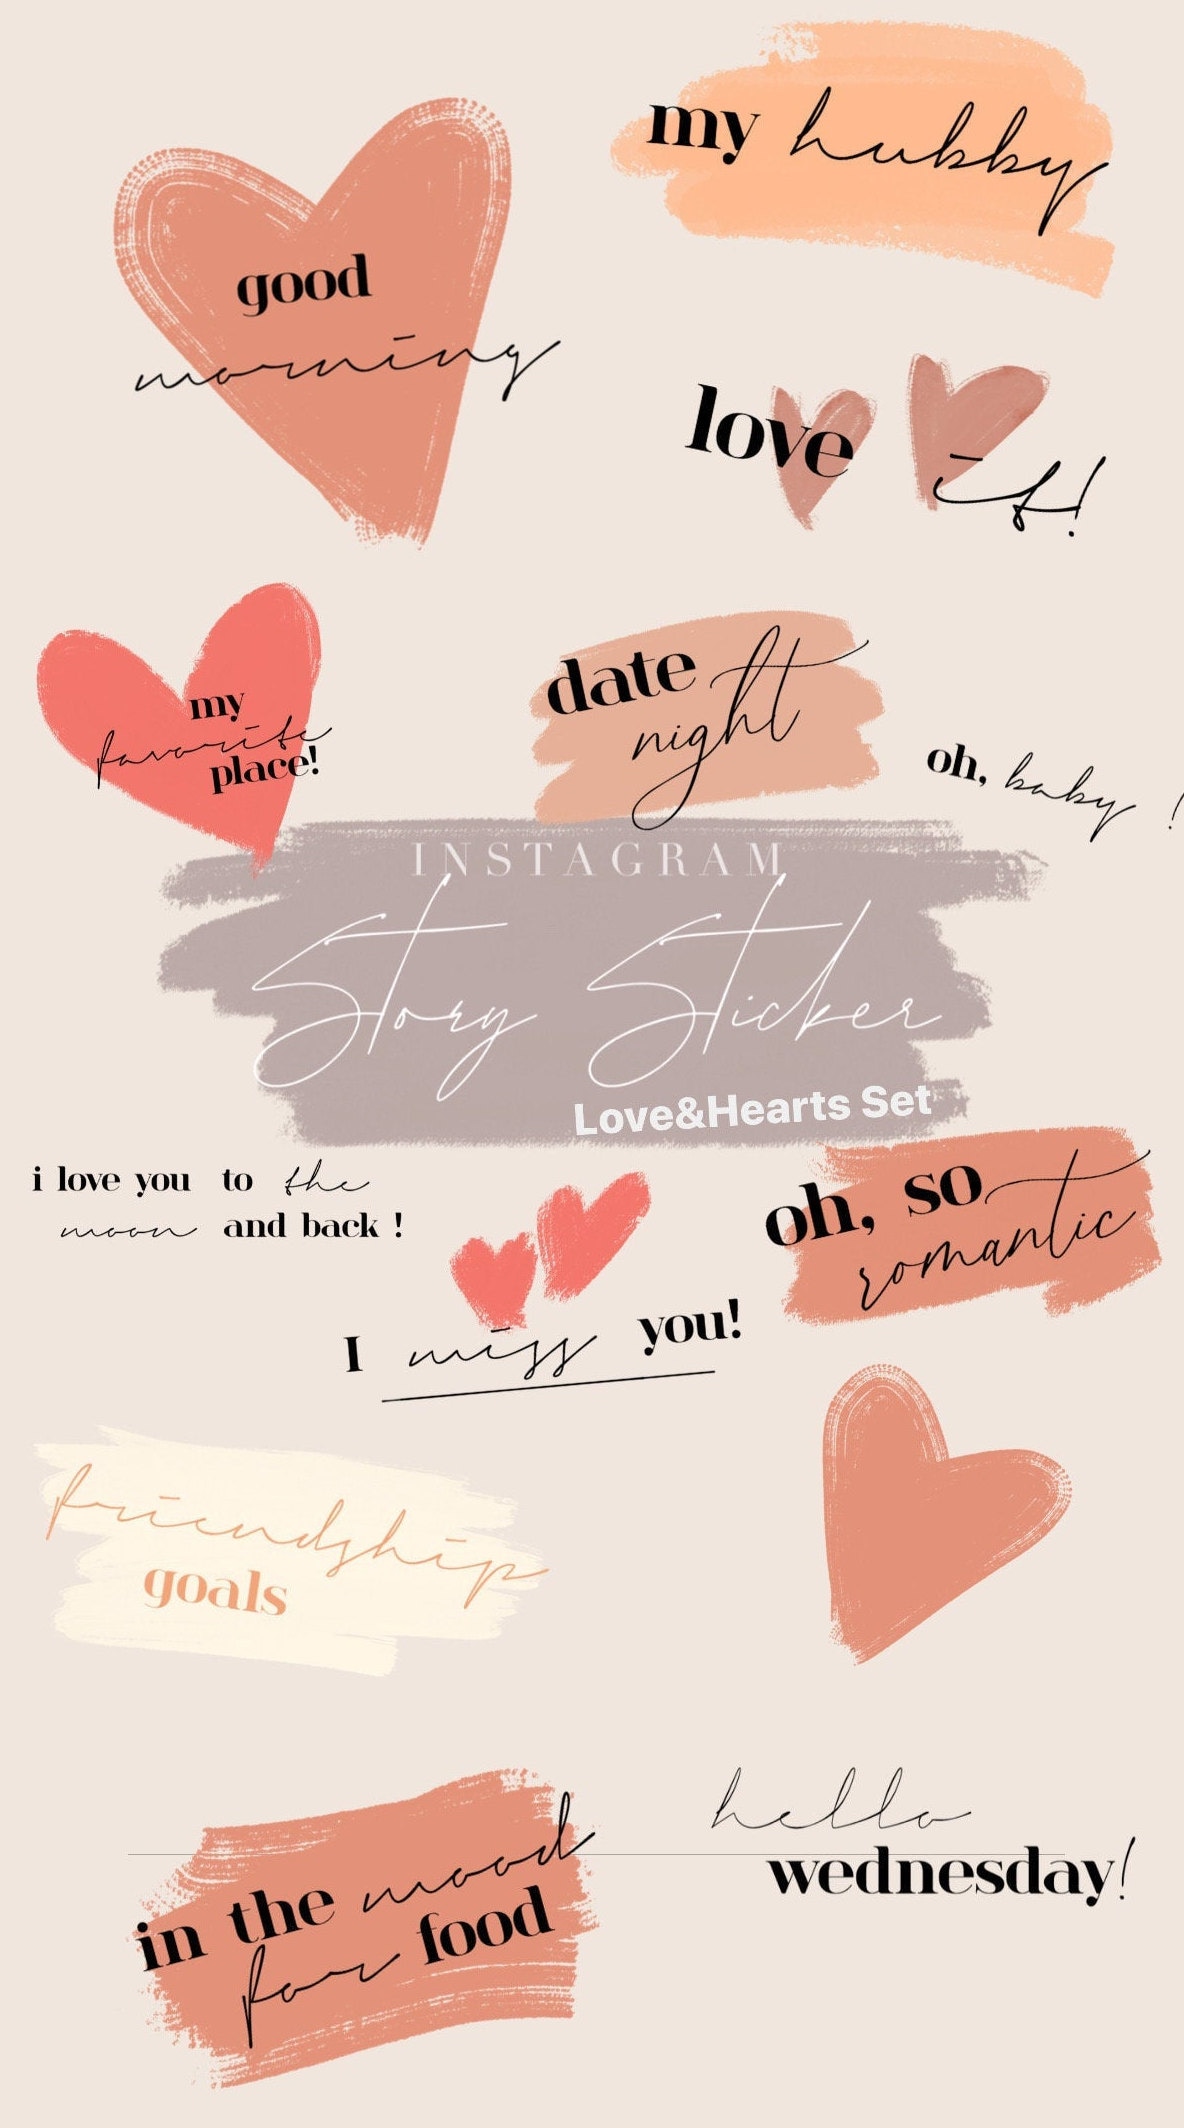 my hubby
good
morning
love it!
my
favorite
place!
date
night
oh, baby !
INSTAGRAM
Story Sticker
Love&Hearts Set
i love you to the
moon and back !
oh, so
romantic
I miss you!
friendship
goals
hello
wednesday!
in the mood
for food